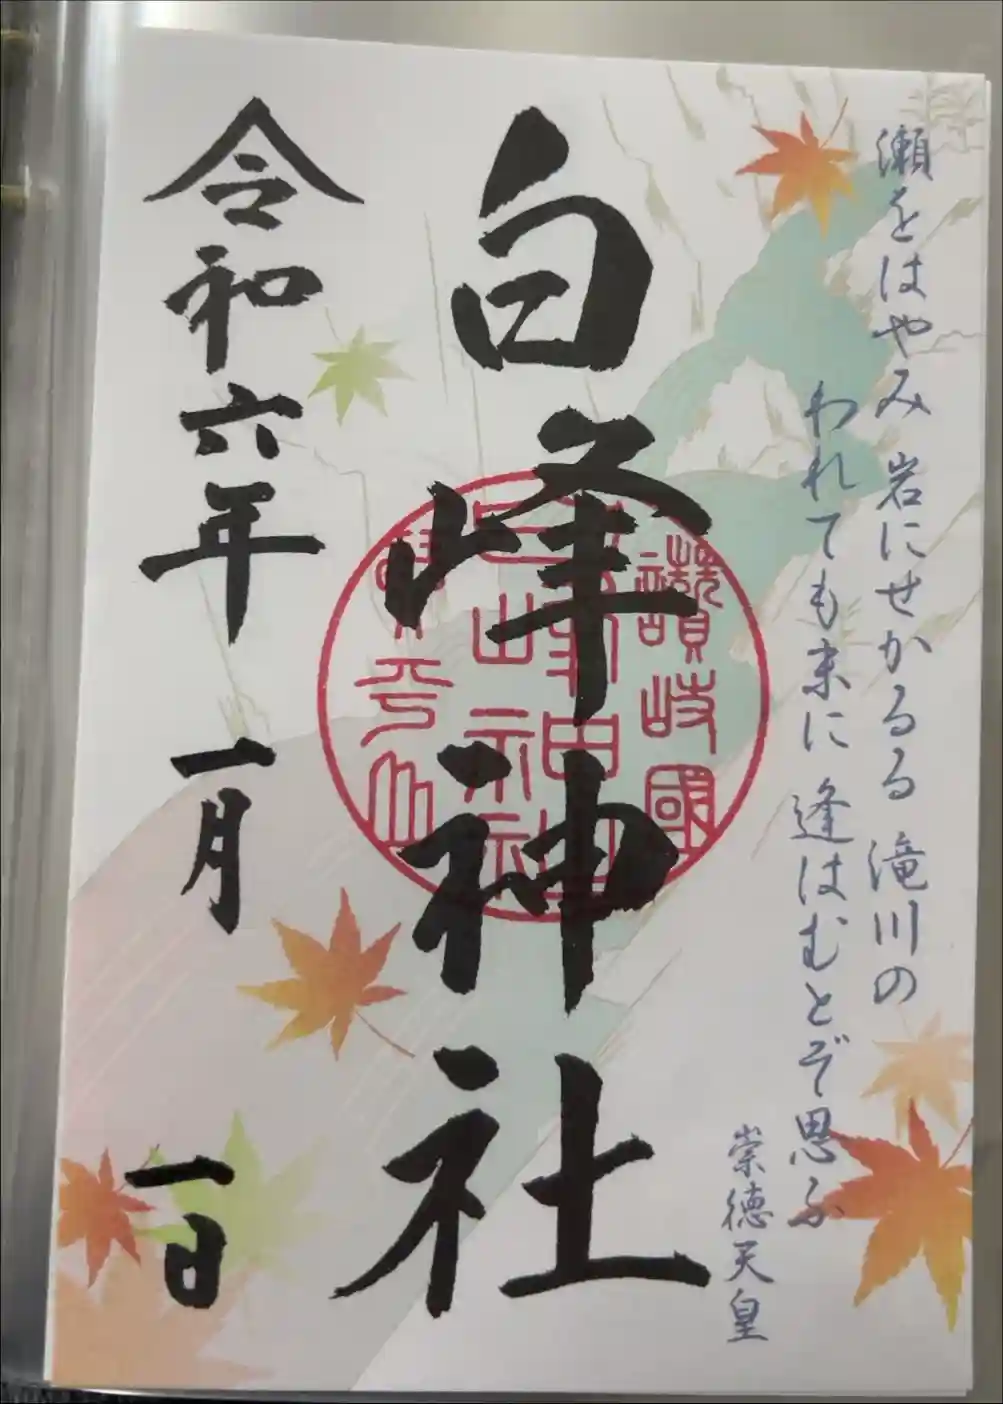 瀬をはやみ 岩にせかるる 滝川の
われても末に 逢はむとぞ思ふ
崇徳天皇
白峰神社
讃岐國
令和六年 一月 一日